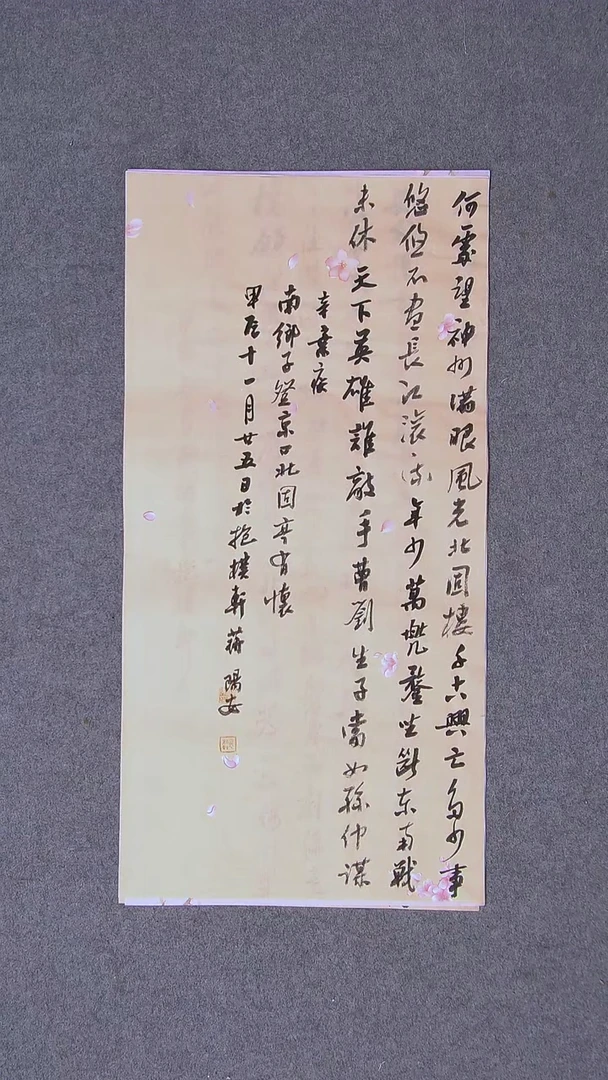 何處望神州滿眼風光北固樓千古興亡多少事
悠悠不盡長江滾流年少萬兜鍪坐斷东南戰
未休天下英雄誰敵手曹劉生子當如孫仲謀
辛棄疾
南鄉子登京口北固亭有懷
甲辰十一月廿五日於抱樸軒蔣陽安